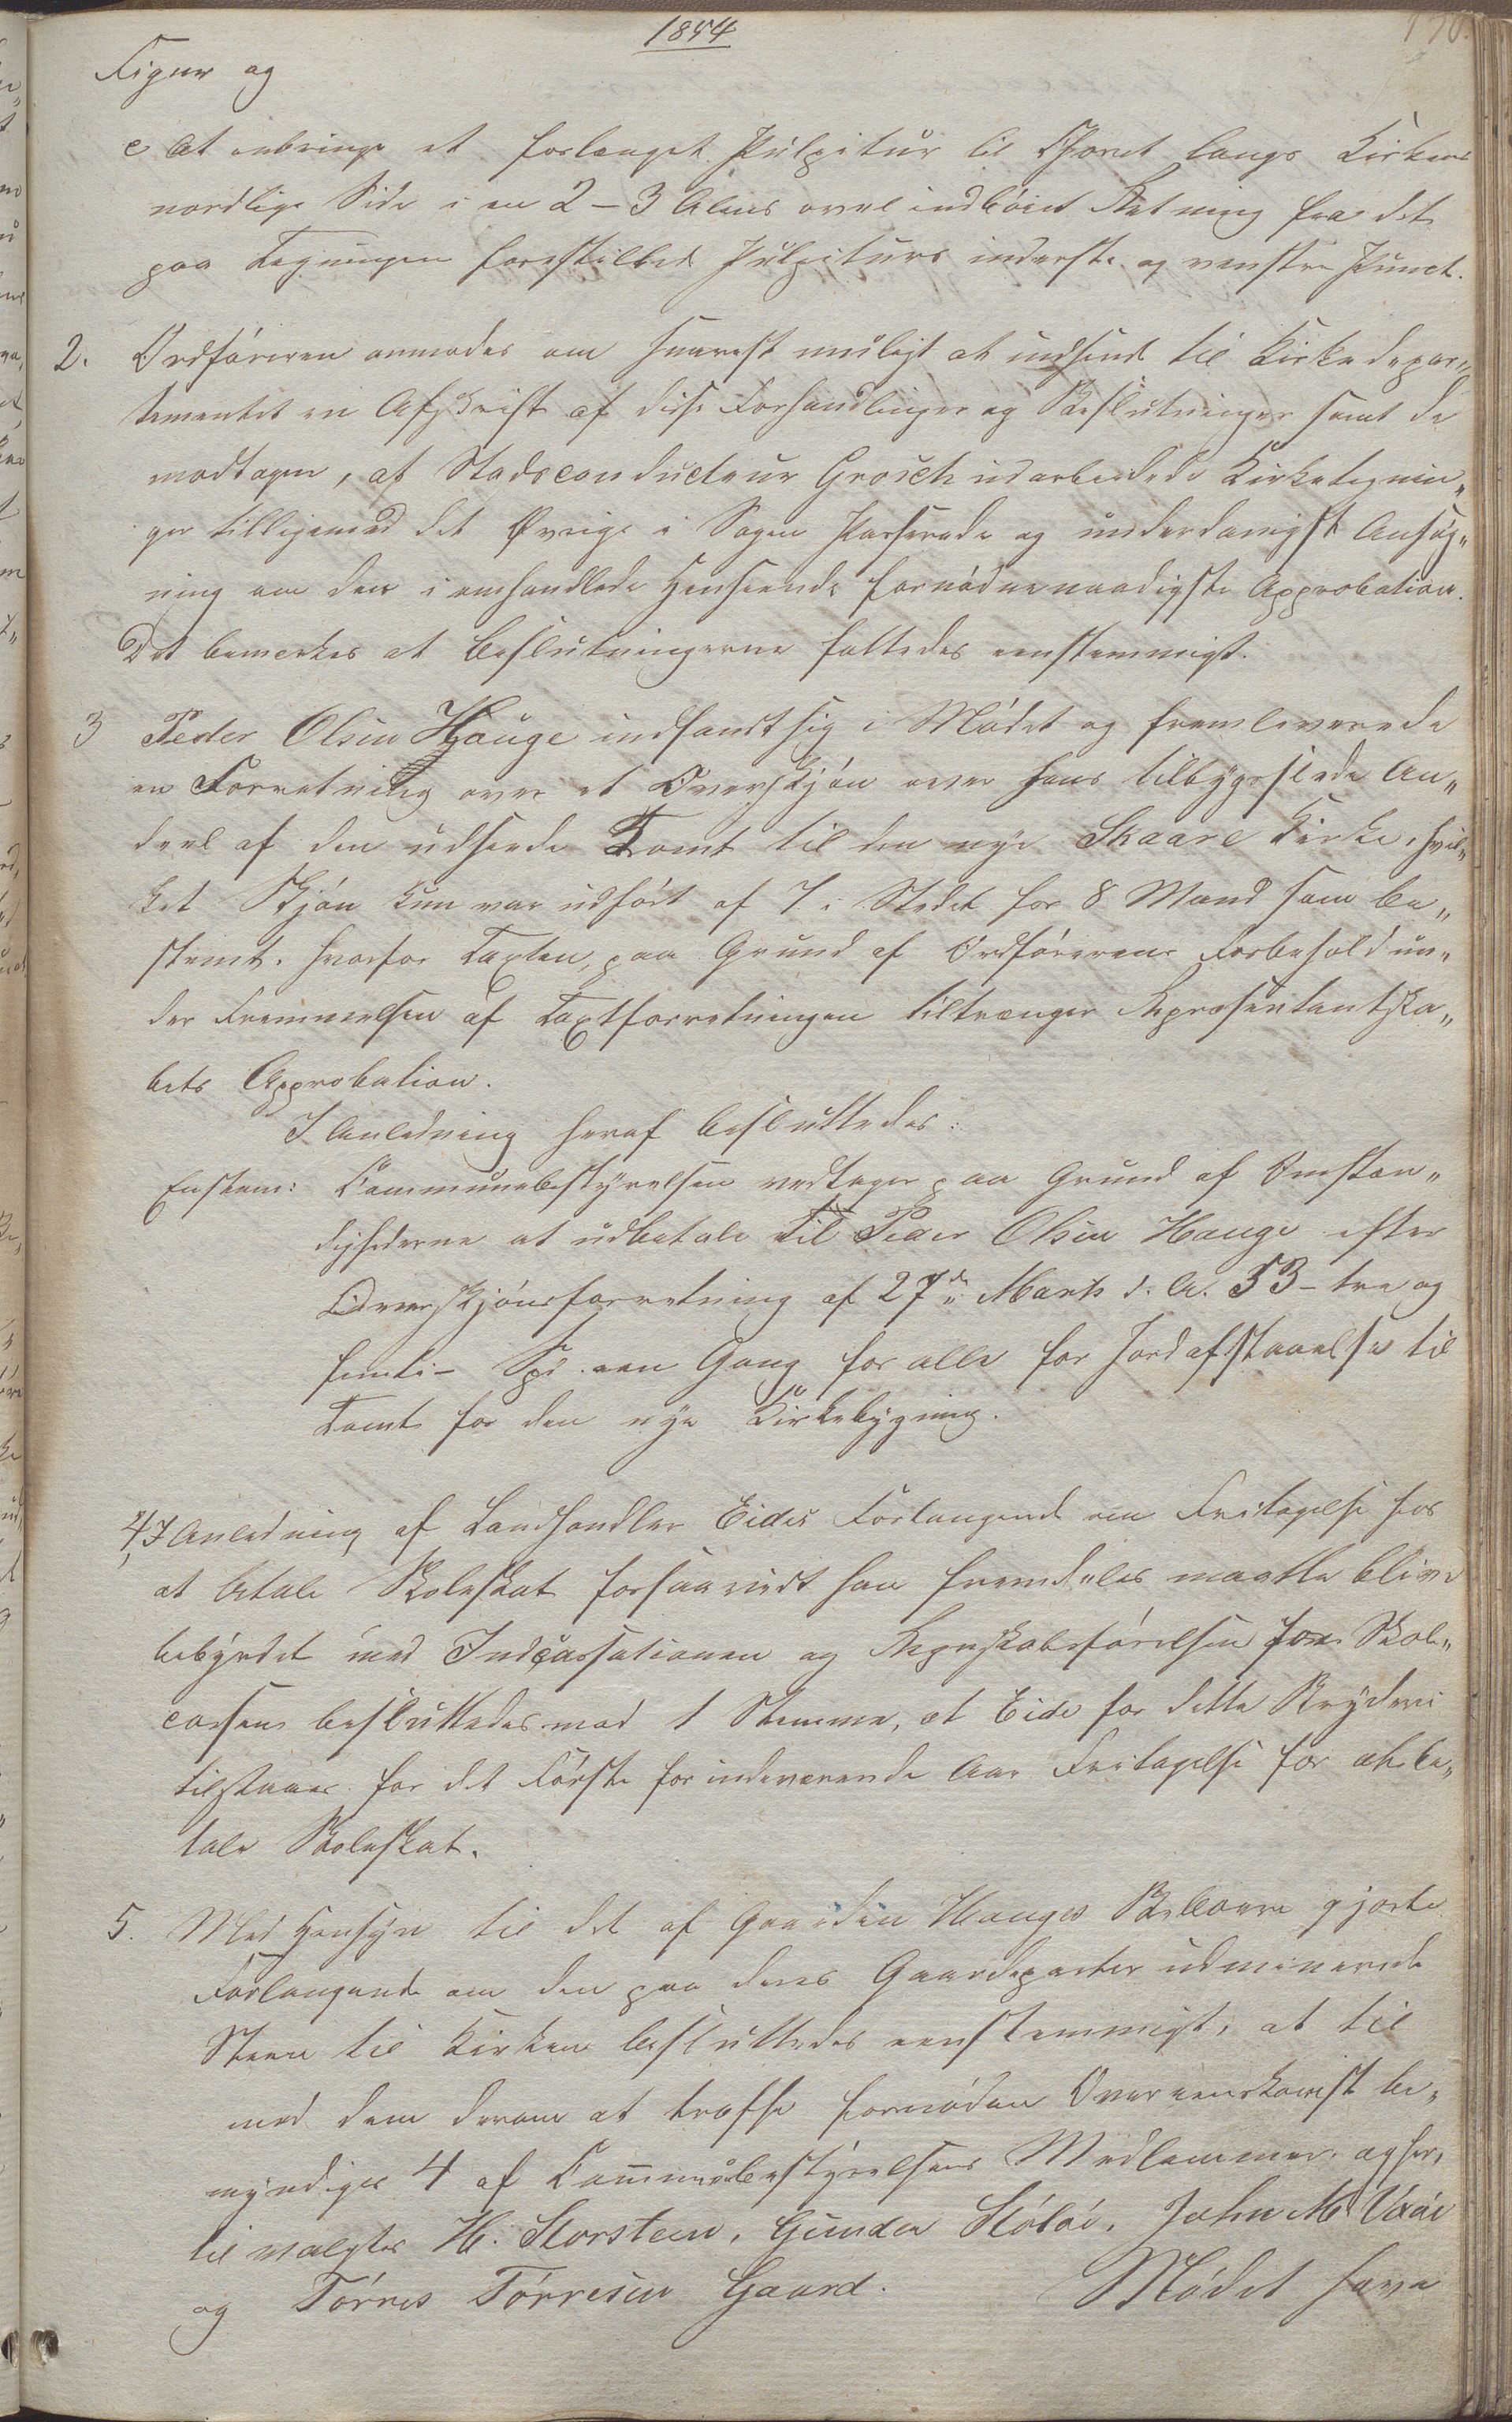 1854
170.
Figur og
c At anbringe et forlænget Pulpitur til Choret langs Kirkens
nordlige Side i en 2–3 Alens oval indbóiet Retning fra det
paa Tegningen forestillede Pulpiturs inderste og venstre Punct.
2. Ordfóreren anmodes om snarest muligt at indsende til Kirkedepar„
tementet en Afskrift af disse Forhandlinger og Beslutninger samt de
modtagne, af Stadsconducteur Grosch udarbeidede Kirketegnin„
ger tilligemed det Øvrige i Sagen Passerede og underdanigst Ansøg„
ning om den i omhandlede Henseende fornódne naadigste Approbation.
Det bemerkes at Beslutningerne fattedes eenstemmigt.
3 Peder Olsen Hauge indfandt sig i Módet og fremleverede
en Forretning over et Overskjón over hans tilbygslede An„
deel af den udseede Tomt til den nye Skaare Kirke, hvil„
ket Skjón kun var udfórt af 7 i Stedet for 8 Mand som be„
stemt, hvorfor Taxten, paa Grund af Ordfórerens Forbehold un„
der Fremmelsen af Taxtforretningen tiltrænger Repræsentantska„
bets Approbation.
I Anledning heraf besluttedes:
Enstem: Communebestyrelsen vedtager paa Grund af Omstæn„
dighederne at udbetale til Peder Olsen Hauge efter
Overskjónsforretning af 27de Marts d. A. 53 – tre og
femti – Spd. een Gang for alle for Jordafstaaelse til
Tomt for den nye Kirkebygning.
4, I Anledning af Landhandler Eides Forlangende om Fritagelse for
at betale Skoleskat forsaavidt han fremdeles maatte blive
bebyrdet med Indcassationen og Regnskabsfórelsen for Skole„
cassen besluttedes mod 1 Stemme, at Eide for dette Bryderi
tilstaaes for det Fórste for indeværende Aar Fritagelse for at be„
tale Skoleskat.
5. Med Hensyn til det af Gaarden Hauges Beboere gjorte
Forlangende om den paa deres Gaardeparter udminerede
Steen til Kirken besluttedes eenstemmigt, at til
med dem derom at træffe fornóden Overeenskomst be„
myndiges 4 af Communebestyrelsens Medlemmer, og her„
til valgtes H. Storsteen, Gunder Stólói, John M. Vaae
og Tórres Tórresen Gaard. Módet hæve